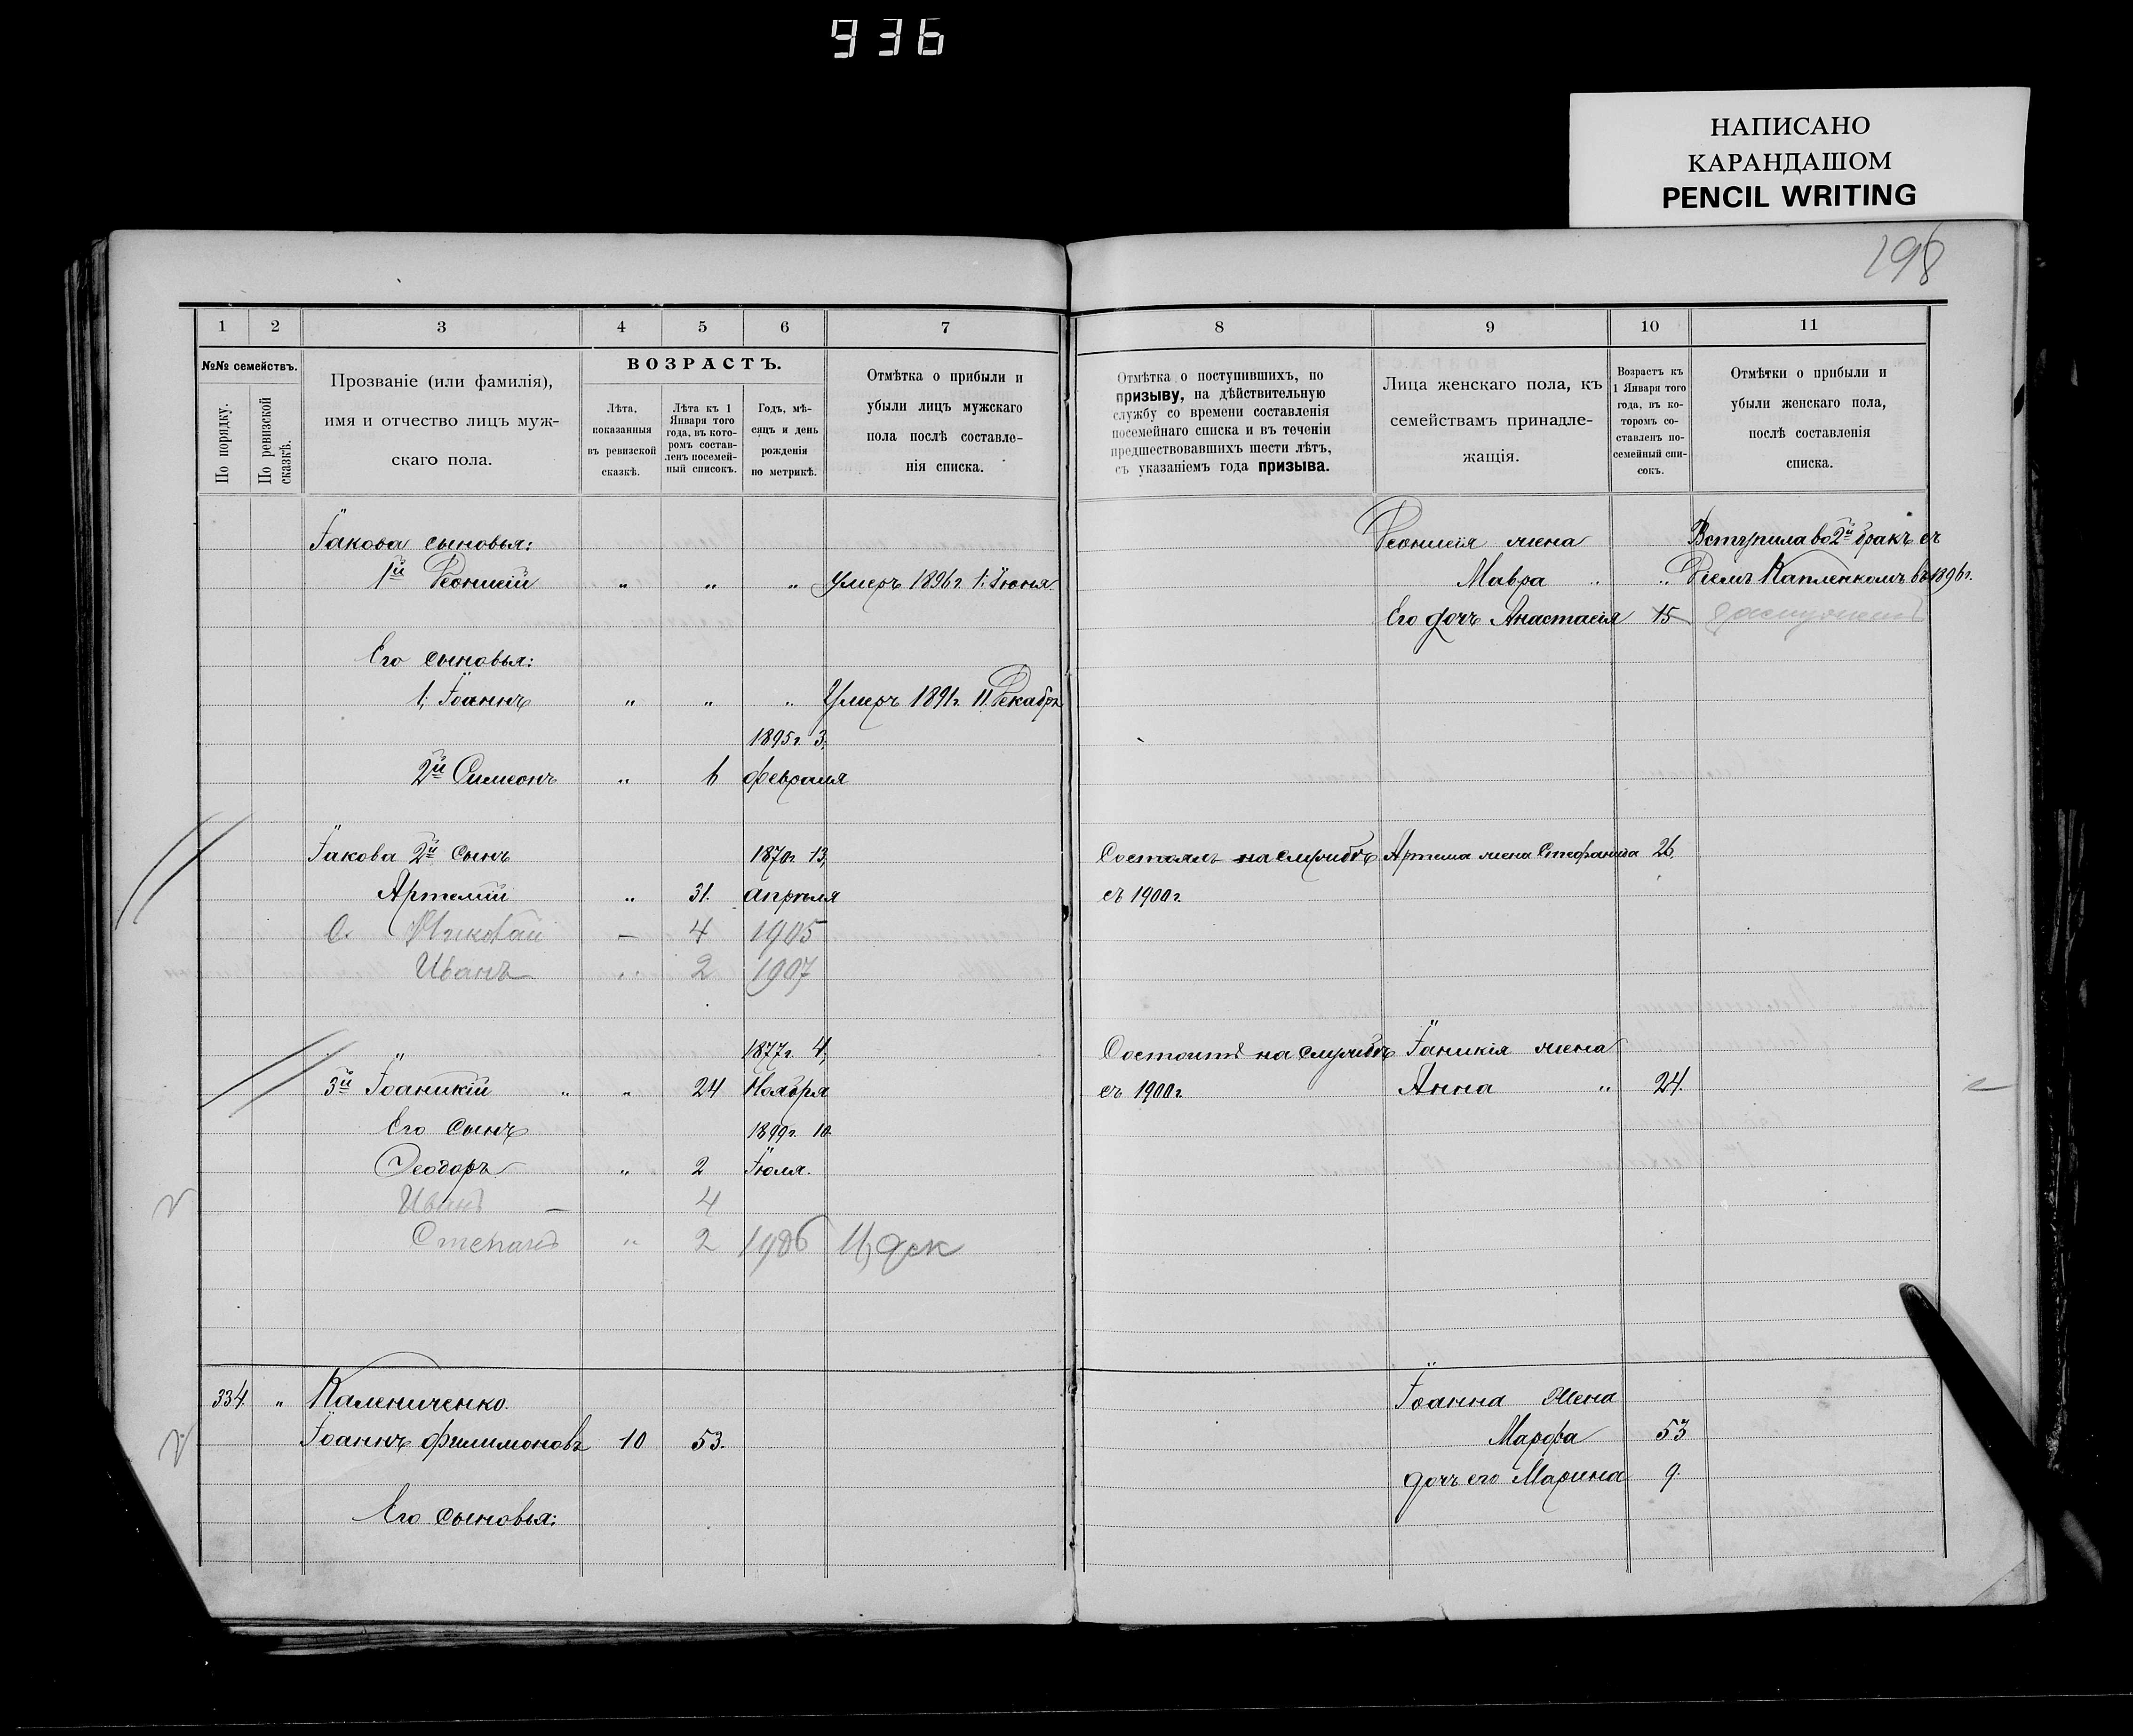 936
НАПИСАНО
КАРАНДАШОМ
PENCIL WRITING
198
1 2 3 4 5 6 7
№№ семействъ.
По порядку.
По ревизской сказкѣ.
Прозваніе (или фамилія),
имя и отчество лицъ муж-
скаго пола.
ВОЗРАСТЪ.
Лѣта,
показанныя
въ ревизской
сказкѣ.
Лѣта къ 1
Января того
года, въ кото-
ромъ состав-
ленъ посемей-
ный списокъ.
Годъ, мѣ-
сяцъ и день
рожденія
по метрикѣ.
Отмѣтка о прибыли и
убыли лицъ мужскаго
пола послѣ составле-
нія списка.
Їакова сыновья:
1й Діонисій " " " Умеръ 1896 г. 1: Їюня.
Его сыновья:
1; Їоаннъ " " " Умеръ 1891 г. 11. Декабря
1895 г. 3;
2й Симеонъ " 6 февраля
Їакова 2й Сынъ 1870 г 13,
Артемій " 31. апрѣля
С. Николай — 4 1905
Иванъ " 2 1907
1877 г. 4;
3й Їоаникій " " 24 Ноября
Его Сынъ 1899 г. 10
Ѳеодоръ " 2 Їюля.
Иванъ — 4
Степанъ " 2 1906 11, дек
334. " Калениченко.
Їоаннъ Филимоновъ 10 53.
Его сыновья:
8 9 10 11
Отмѣтка о поступившихъ, по
призыву, на дѣйствительную
службу со времени составленія
посемейнаго списка и въ теченіи
предшествовавшихъ шести лѣтъ,
съ указаніемъ года призыва.
Лица женскаго пола, къ
семействамъ принадле-
жащія.
Возрастъ къ
1 Января того
года, въ ко-
торомъ со-
ставленъ по-
семейный спи-
сокъ.
Отмѣтки о прибыли и
убыли женскаго пола,
послѣ составленія
списка.
Діонисія жена Вступила во 2й бракъ съ
Мавра " " Капленкомъ въ 1896 г.
Его дочь Анастасія 15
Состоялъ на службѣ Артема жена Стефанида 26.
съ 1900 г.
Состоитъ на службѣ Їаникія жена
съ 1900 г. Анна " 24.
Їоанна Жена
Марфа 53
дочь его Марина 9.